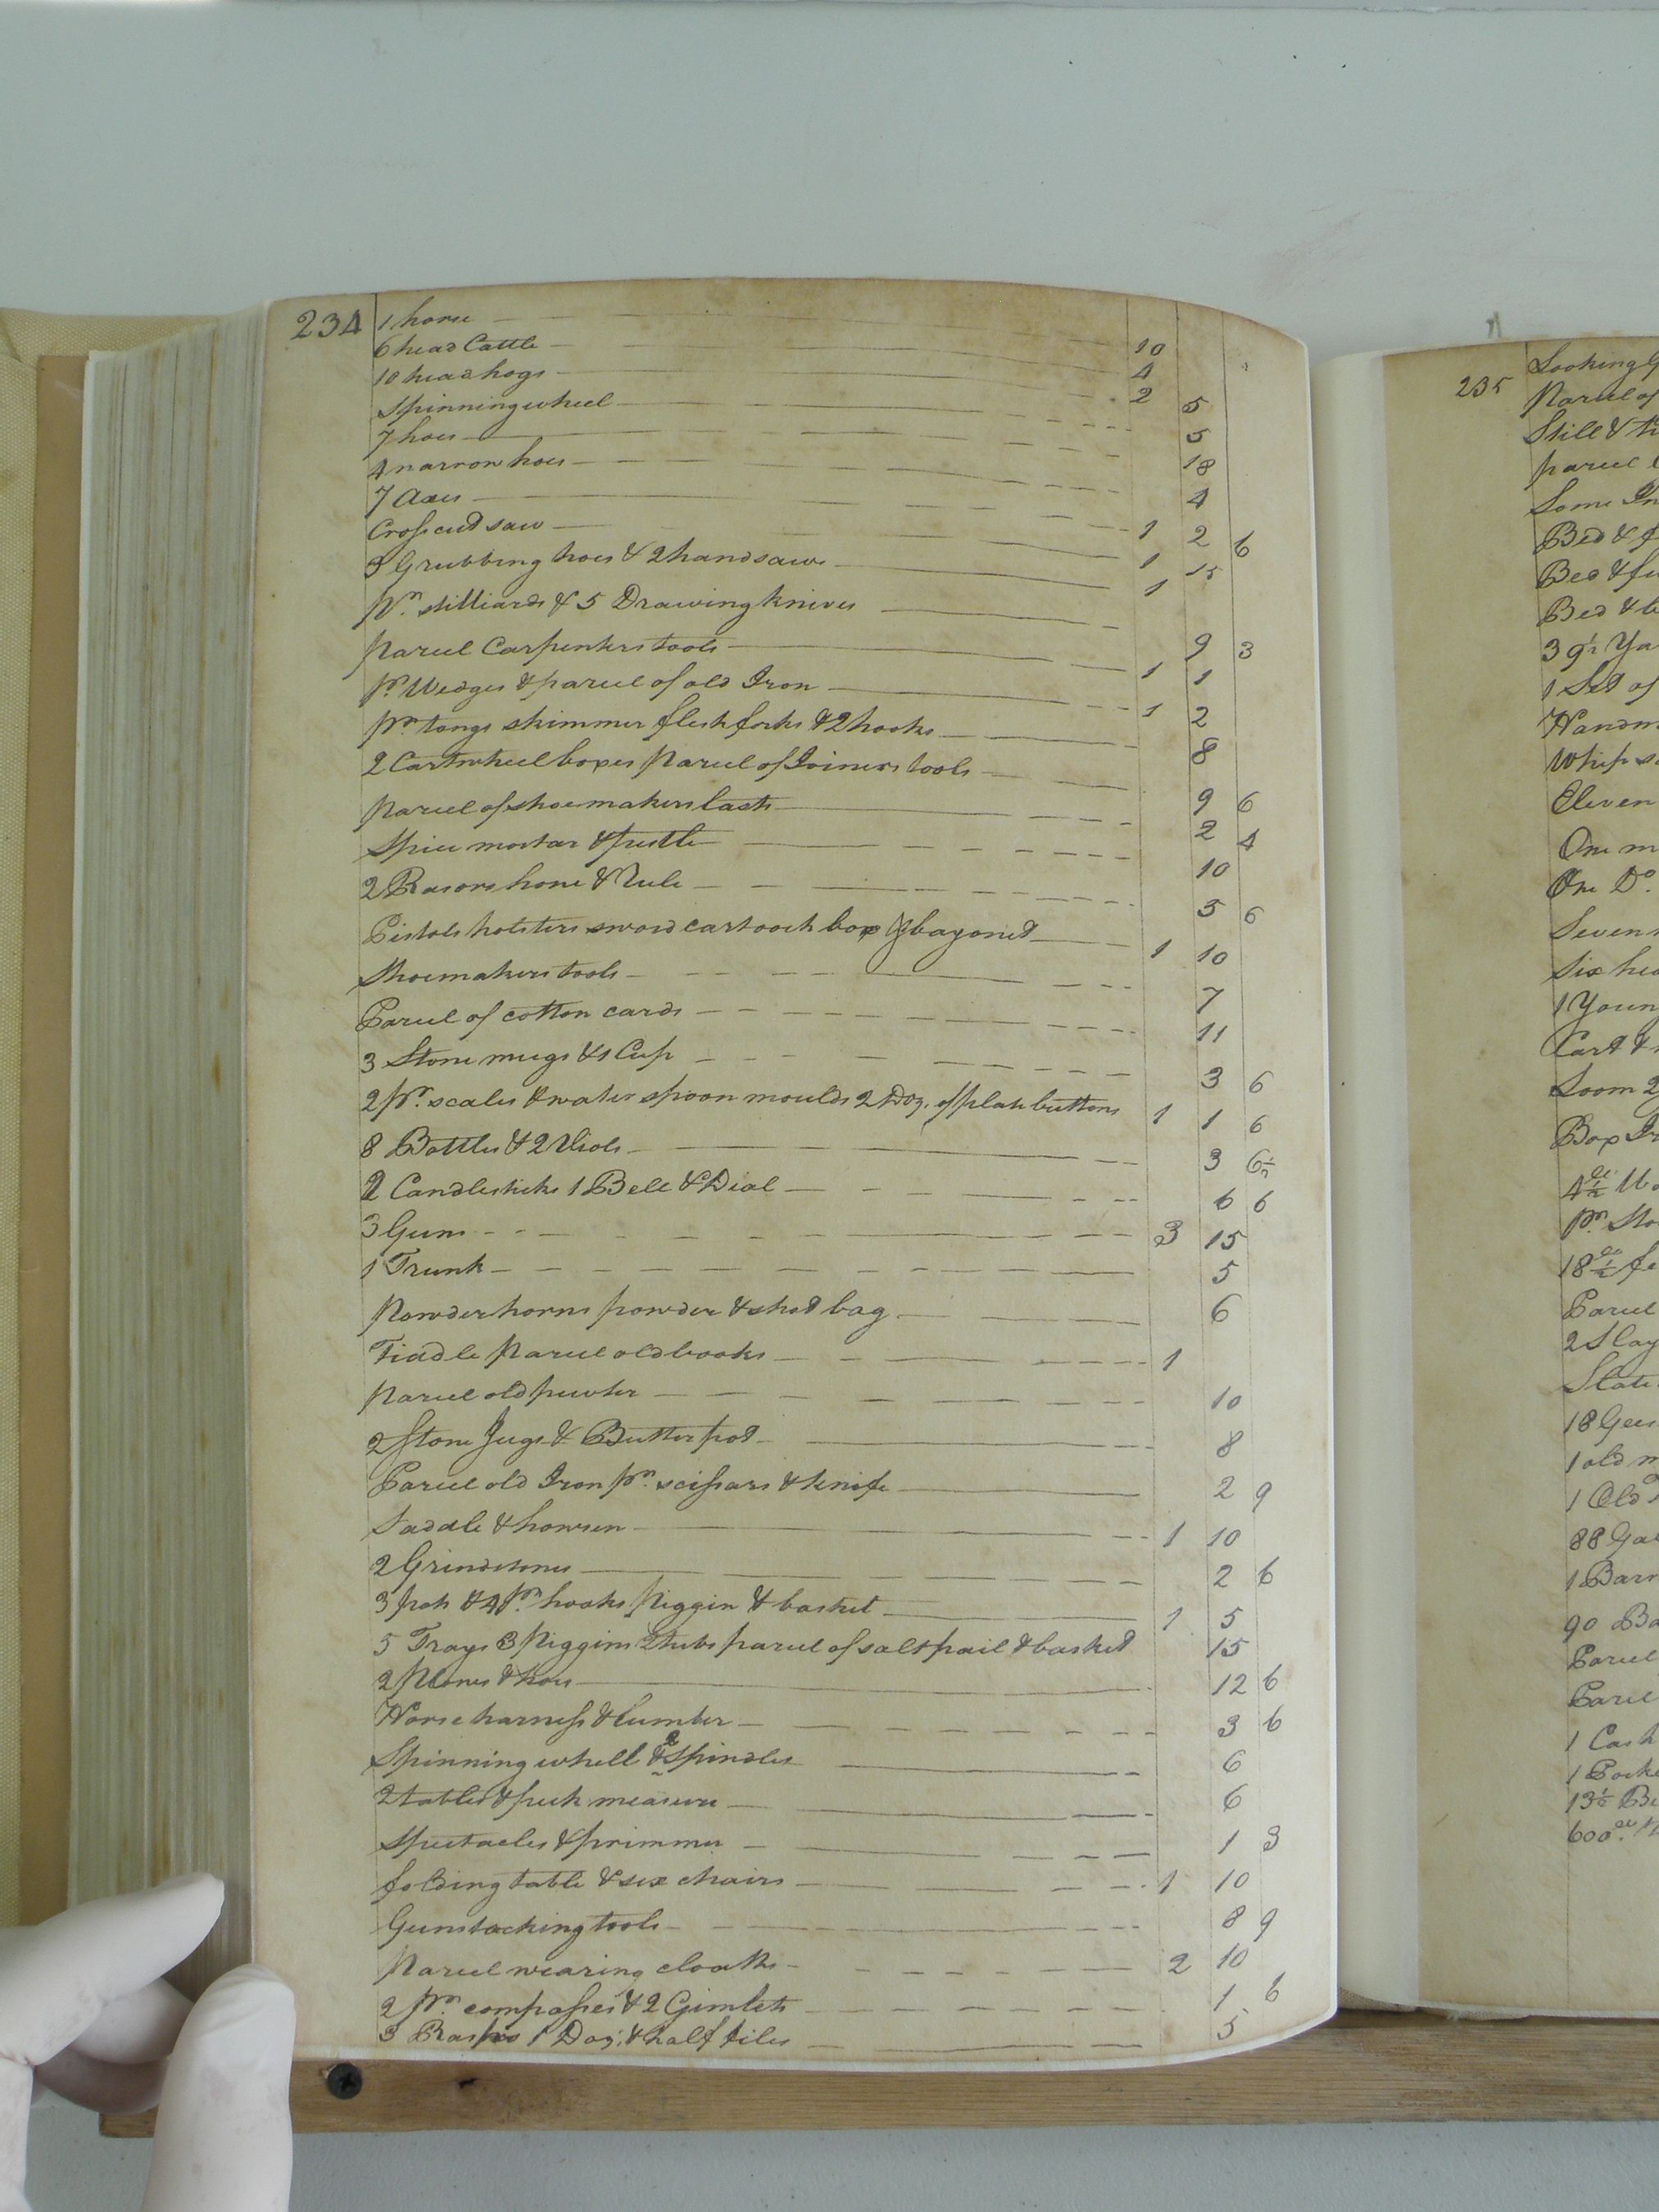 234
1 horse 10
6 head Cattle 4
10 head hogs 2 5
Spinning wheel 5
7 hoes 18
4 narrow hoes 4
7 Axes 1 2 6
Cross cut saw 1 15
3 Grubbing hoes & 2 handsaws 1
Pr. stilliards & 5 Drawing knives 9 3
Parcel Carpenters tools 1 1
Pr. Wedges & parcel of old Iron 1 2
Pr. tongs skimmer flesh forks & 2 hooks 8
2 Cartwheel boxes Parcel of Joiners tools 9 6
Parcel of shoemakers lasts 2 4
Spice mortar & pestle 10
2 Rasors hone & Rule 5 6
Pistols holsters sword cartooch box & bayonet 1 10
Shoemakers tools 7
Parcel of cotton cards 11
3 Stone mugs & 1 Cup 3 6
2 Pr. scales & wates spoon moulds 2 Doz. of plate buttons 1 1 6
8 Bottles & 2 Viols 3 6½
2 Candlesticks 1 Bell & Dial 6 6
3 Guns 3 15
1 Trunk 5
Powder horns powder & shot bag 6
Fiddle Parcel old books 1
Parcel old pewter 10
2 Stone Jugs & Butter pot 8
Parcel old Iron Pr. scissars & knife 2 9
Saddle & howsen 1 10
2 Grindstones 2 6
3 pots & 4 Pr. hooks Piggin & basket 1 5
5 Trays 3 Piggins 2 tubs parcel of salt pail & basket 15
2 Plows & hoes 12 6
Horse harness & lumber 3 6
Spinning whell & 2 Spindles 6
2 tables & peck measure 6
Spectacles & primmer 1 3
folding table & six chairs 1 10
Gunstocking tools 8 9
Parcel wearing cloaths 2 10
2 Pr. compasses & 2 Gimlets 1 6
3 Rasps 1 Doz. & half files 5
235
Looking
Parcel of
Still &
parcel
Some
Bed &
Bed &
Bed &
3 qr Ya
1 Set of
Handm
Whip s
Eleven
One m
One Do.
Seven
Six hea
1 Young
Cart &
Loom 2
Box Ir
4½
Pr. Sto
18½ fe
Parcel
2 Slay
18 Gees
1 old m
1 Old
88 Gal
1 Barr
90 Ba
Parcel
Parcel
1 Cash
1 Pocke
13½ Bu
600